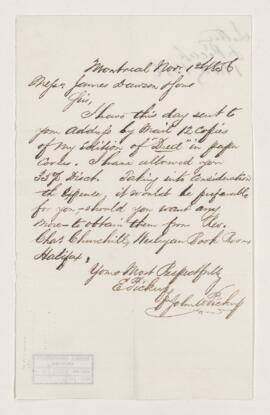 Montreal Nov. 1st 1856
Messrs James Dawson & Sons
Sir,
I have this day sent to
your Address by Mail 12 copies
of my edition of "Deed" in paper
Cover. I have allowed you
33% Disct. Taking into Consideration
the Expence, it would be preferable
for you should you want any
more to obtain them from Rev.
Chas Churchill, Wesleyan Book Room
Halifax,
Yours Most Respectfully
E Pickup
John W Pickup